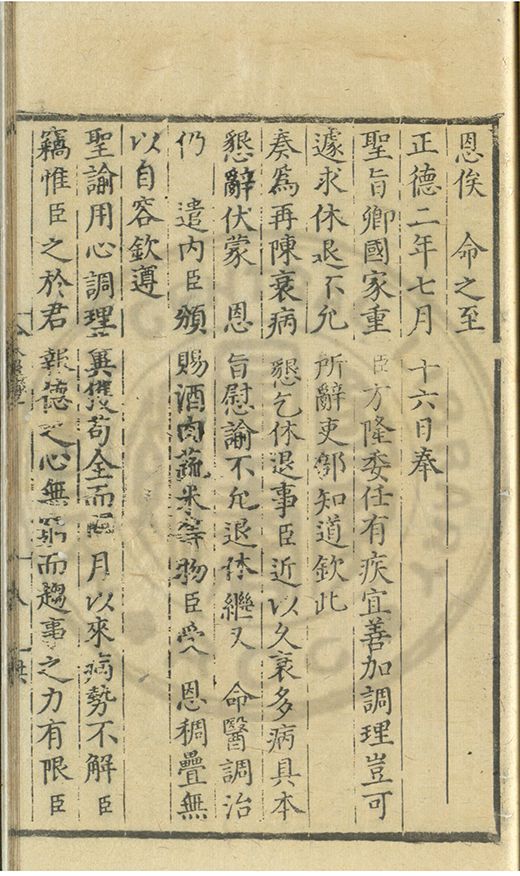 恩俟　命之至
正德二年七月十六日奉
聖旨卿國家重臣方隆委任有疾宜善加調理豈可
遽求休退不允所辭吏部知道欽此
奏爲再陳衰病懇乞休退事臣近以久衰多病具本
懇辭伏蒙　恩旨慰諭不允退休繼又　命醫調治
仍　遣内臣頒賜酒肉蔬米等物臣受　恩稠疊無
以自容欽遵
聖諭用心調理冀獲苟全而月以來病勢不解臣
竊惟臣之於君報德之心無而趨事之力有限臣